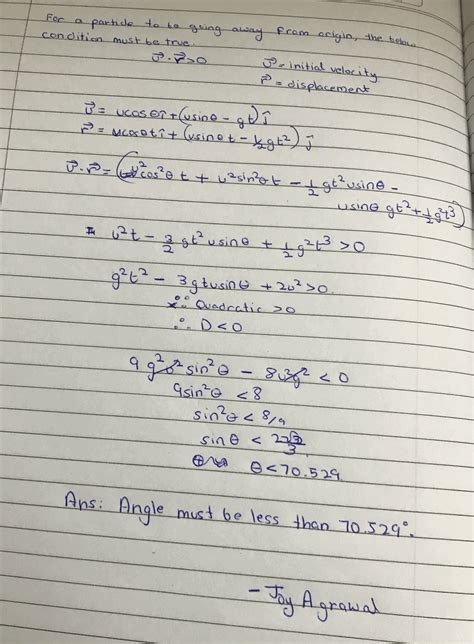 For a particle to be going away from origin, the below
condition must be true.
v⃗·r⃗>0
v⃗=initial velocity
r⃗ = displacement
v⃗ = ucosθî+(usinθ - gt)ĵ
r⃗ = ucosθtî+(usinθt - ½gt²)ĵ
v⃗·r⃗=(u²cos²θt + u²sin²θt - ½gt²usinθ -
usinθgt²+½g²t³)
u²t - 3/2 gt²usinθ + ½g²t³ >0
g²t² - 3gtusinθ +2u²>0
∵ Quadratic >0
∴ D<0
9g²u²sin²θ - 8u²g² <0
9sin²θ <8
sin²θ < 8/9
sinθ < 2√2/3
θ<70.529
Ans: Angle must be less than 70.529°.
- Joy Agrawal